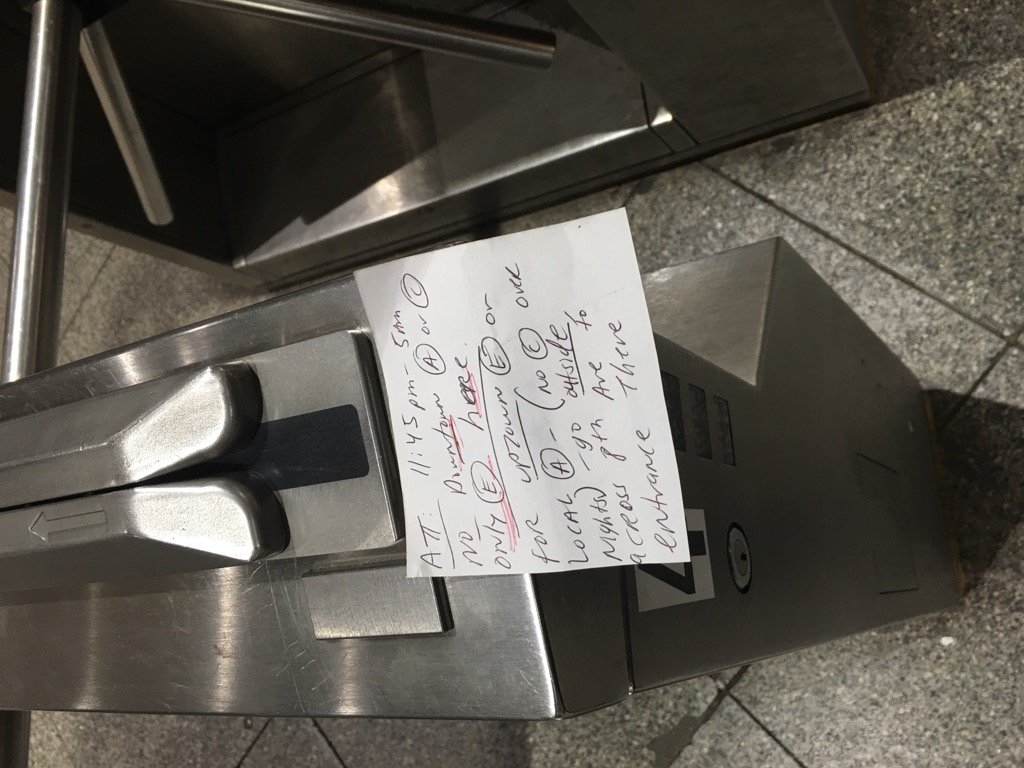 ATT: 11:45pm-5AM
NO Downtown (A) or (C)
only (E) here.
for uptown (E) or
Local (A) - (no (C) over
nights) go outside,
across 8th Ave to
entrance There